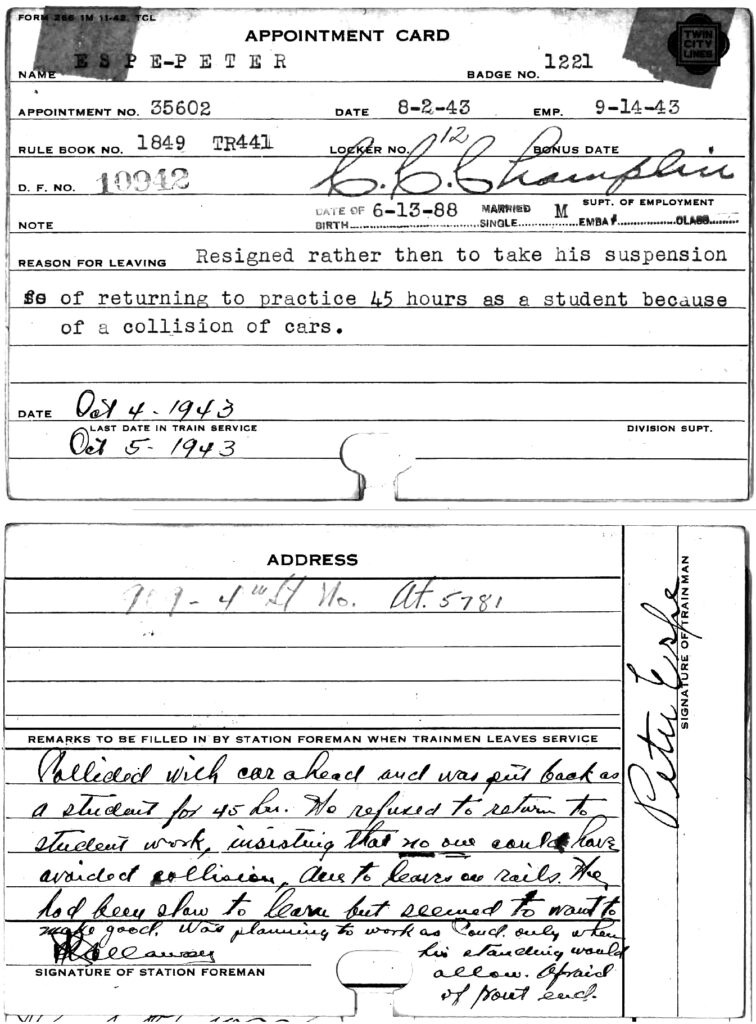 FORM 266 1M 11-42, TCL
APPOINTMENT CARD
TWIN
CITY
LINES
NAME ESPE-PETER BADGE NO. 1221
APPOINTMENT NO. 35602 DATE 8-2-43 EMP. 9-14-43
RULE BOOK NO. 1849 TR441 LOCKER NO. 12 BONUS DATE
D. F. NO. 10942 C. C. Champlin
SUPT. OF EMPLOYMENT
NOTE DATE OF BIRTH 6-13-88 MARRIED SINGLE M EMBA CLASS
REASON FOR LEAVING Resigned rather then to take his suspension
of returning to practice 45 hours as a student because
of a collision of cars.
DATE Oct 4 - 1943
LAST DATE IN TRAIN SERVICE DIVISION SUPT.
Oct 5 - 1943
ADDRESS
4th St No. At. 5781
REMARKS TO BE FILLED IN BY STATION FOREMAN WHEN TRAINMEN LEAVES SERVICE
Collided with car ahead and was put back as
a student for 45 hr. He refused to return to
student work, insisting that no one could have
avoided collision, due to leaves on rails. He
had been slow to learn but seemed to want to
make good. Was planning to work as Cond. only when
his standing would
allow. Afraid
of front end.
SIGNATURE OF STATION FOREMAN
Peter Espe
SIGNATURE OF TRAINMAN